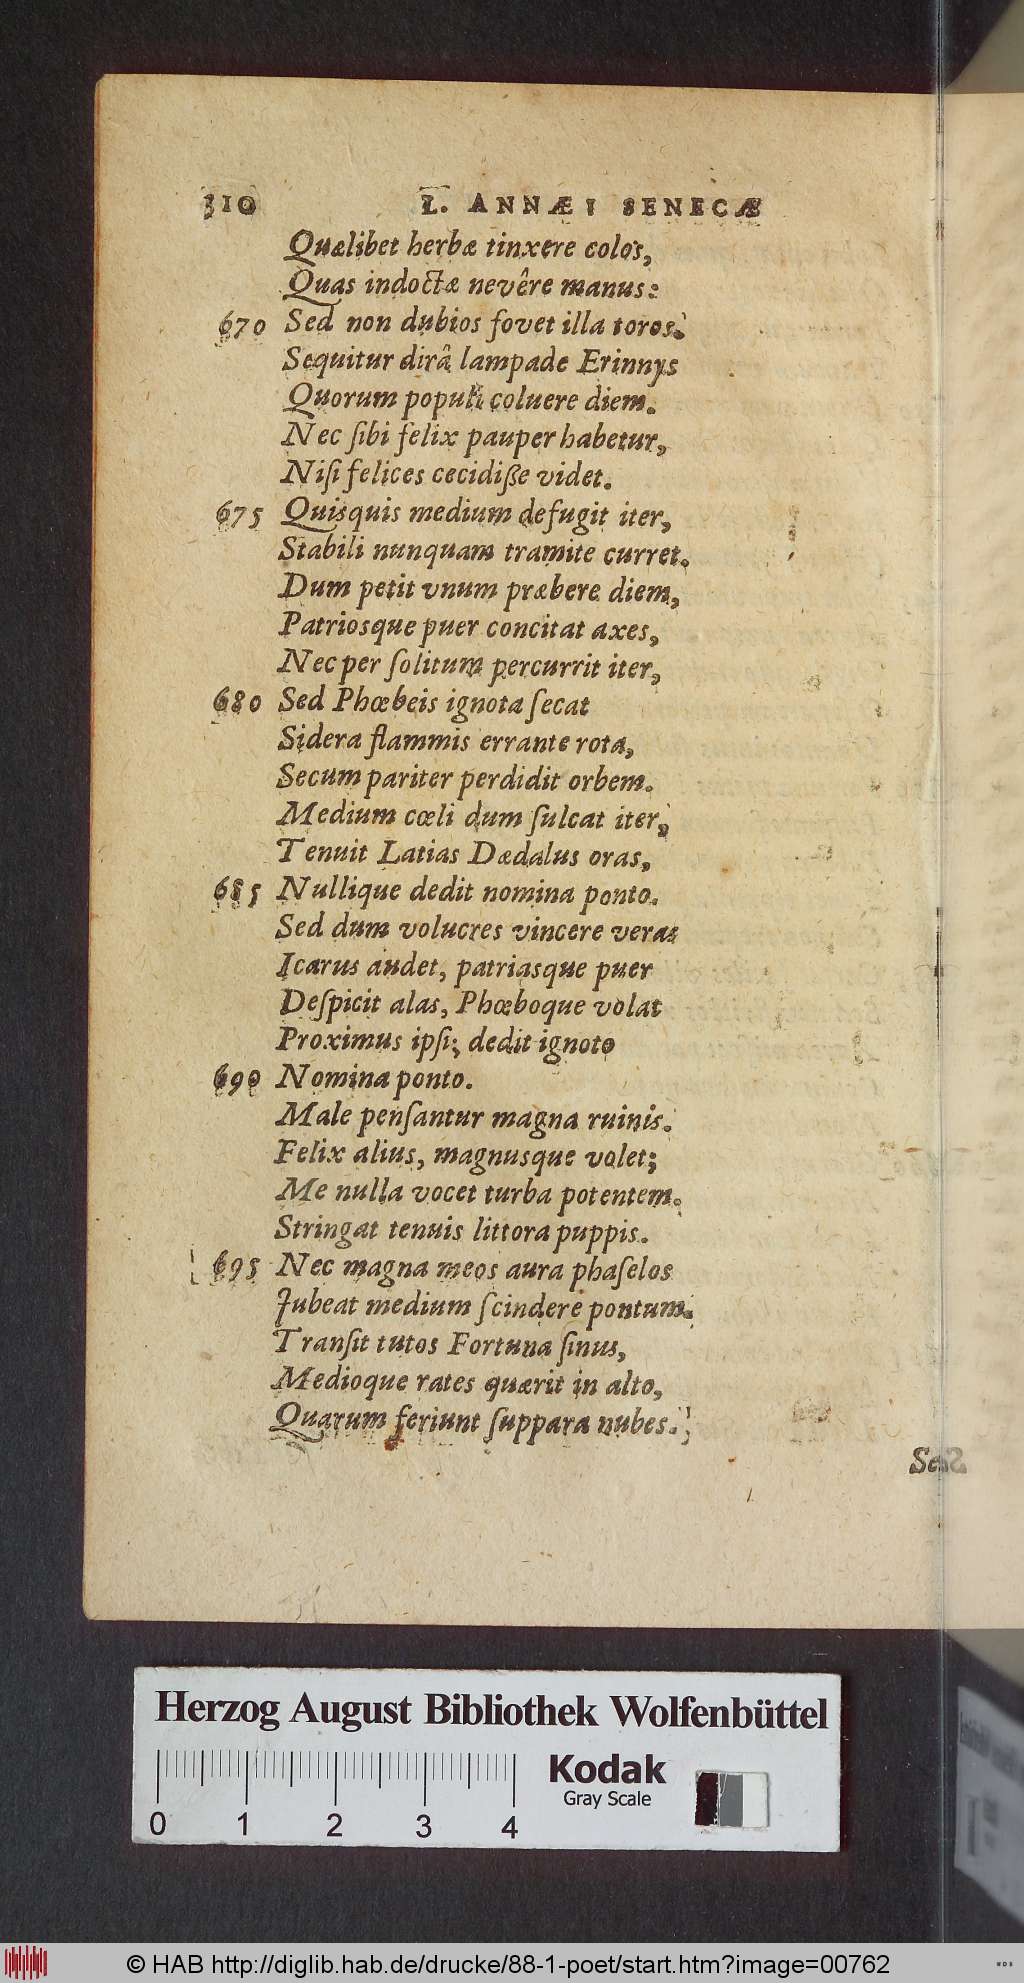 310 L. ANNÆI SENECÆ
Quælibet herbæ tinxere colos,
Quas indoctæ nevêre manus:
670 Sed non dubios fovet illa toros.
Sequitur dirâ lampade Erinnys
Quorum populi coluere diem.
Nec ſibi felix pauper habetur,
Niſi felices cecidiſſe videt.
675 Quisquis medium defugit iter,
Stabili nunquam tramite curret.
Dum petit vnum præbere diem,
Patriosque puer concitat axes,
Nec per ſolitum percurrit iter,
680 Sed Phœbeis ignota ſecat
Sidera flammis errante rota,
Secum pariter perdidit orbem.
Medium cœli dum ſulcat iter,
Tenuit Latias Dædalus oras,
685 Nullique dedit nomina ponto.
Sed dum volucres vincere veras
Icarus audet, patriasque puer
Deſpicit alas, Phœboque volat
Proximus ipſi; dedit ignoto
690 Nomina ponto.
Male penſantur magna ruinis.
Felix alius, magnusque volet;
Me nulla vocet turba potentem.
Stringat tenuis littora puppis.
695 Nec magna meos aura phaſelos
Jubeat medium ſcindere pontum.
Tranſit tutos Fortuna ſinus,
Medioque rates quærit in alto,
Quarum feriunt ſuppara nubes.
Herzog August Bibliothek Wolfenbüttel
Kodak
Gray Scale
0 1 2 3 4
© HAB http://diglib.hab.de/drucke/88-1-poet/start.htm?image=00762